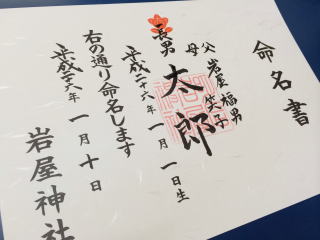 命名書
父 岩屋 福男
母 笑子
長男 太郎
平成二十六年一月一日生
右の通り命名します
平成二十六年一月十日
岩屋神社